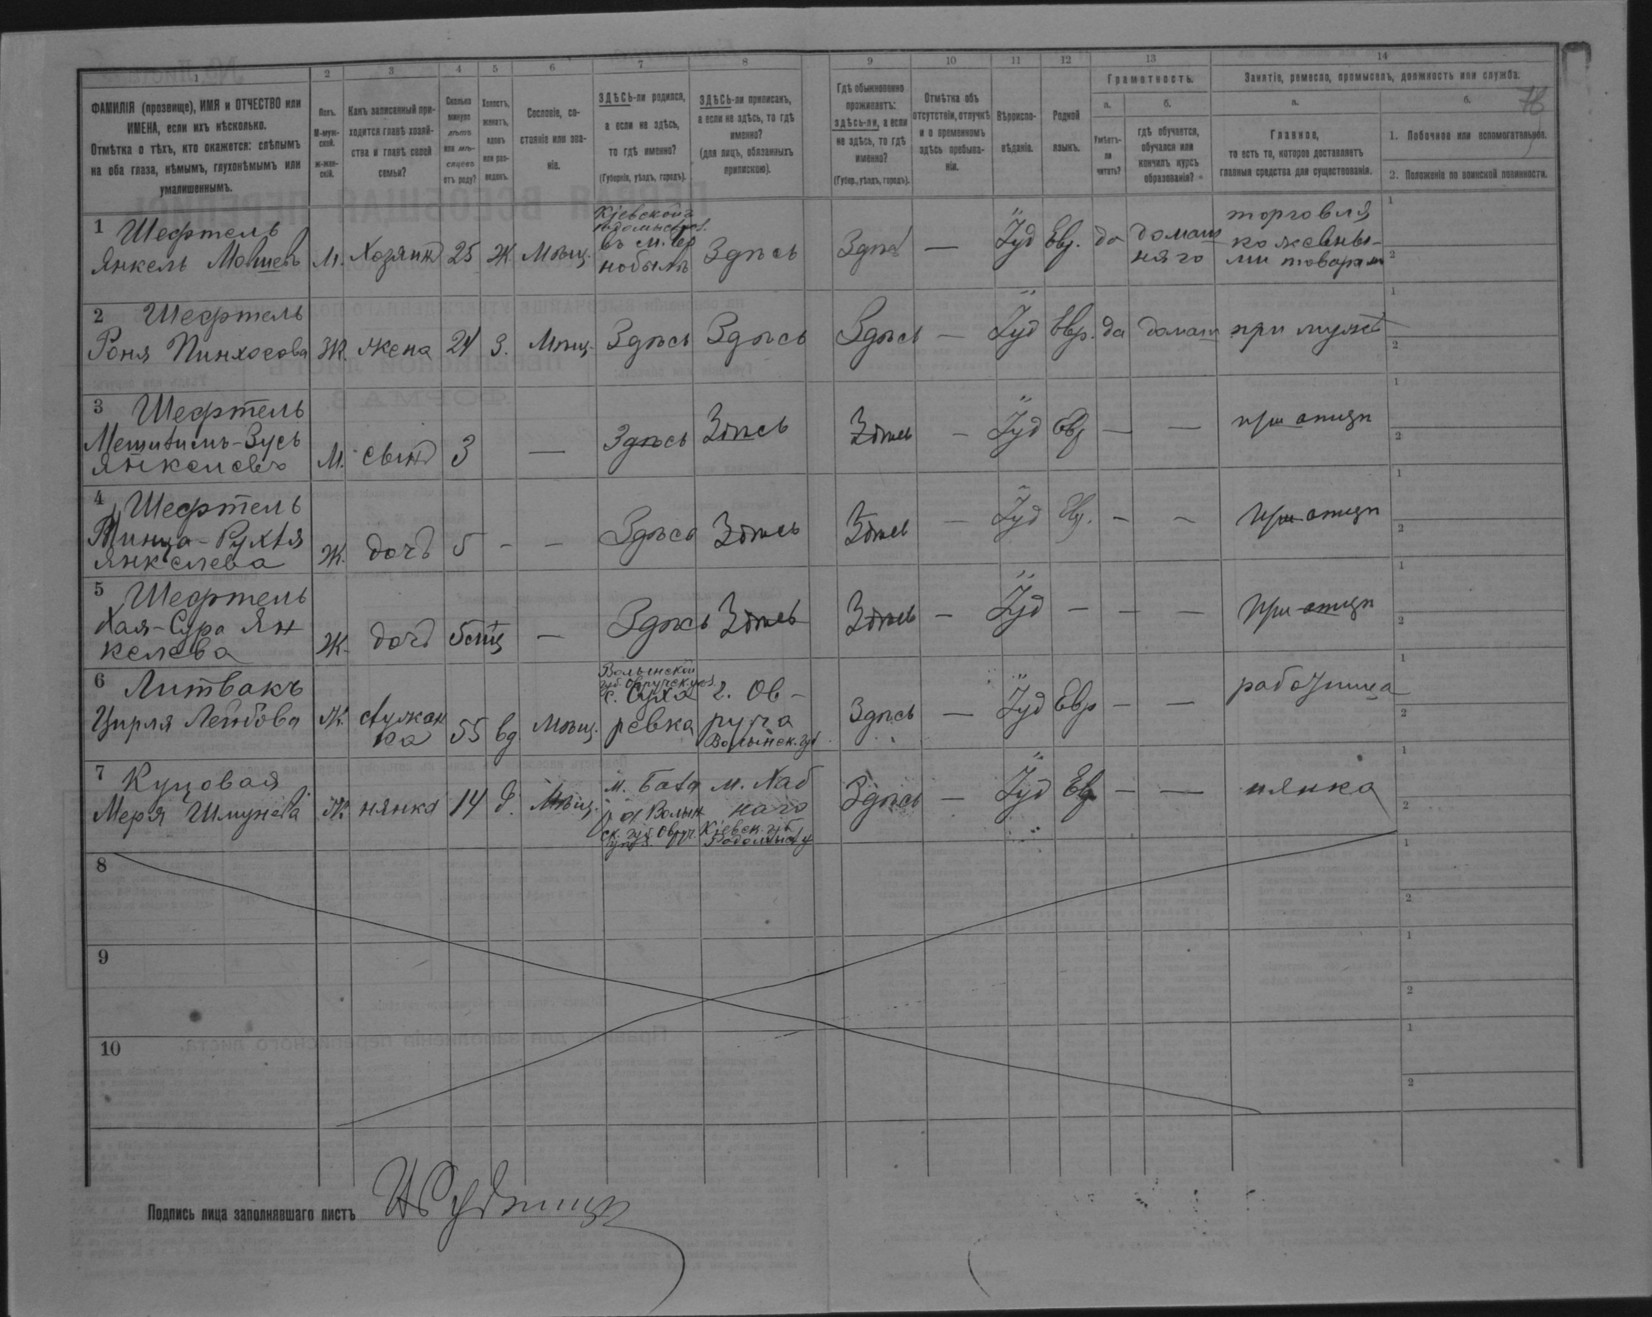 78
1
ФАМИЛІЯ (прозвище), ИМЯ и ОТЧЕСТВО или
ИМЕНА, если ихъ нѣсколько.
Отмѣтка о тѣхъ, кто окажется: слѣпымъ
на оба глаза, нѣмымъ, глухонѣмымъ или
умалишеннымъ.
2
Полъ.
М-муж-
ской.
Ж-жен-
скій.
3
Какъ записанный при-
ходится главѣ хозяй-
ства и главѣ своей
семьи?
4
Сколько
минуло
лѣтъ
или мѣ-
сяцевъ
отъ роду?
5
Холостъ,
женатъ,
вдовъ
или раз-
веденъ.
6
Сословіе, со-
стояніе или зва-
ніе.
7
ЗДѢСЬ-ли родился,
а если не здѣсь,
то гдѣ именно?
(Губернія, уѣздъ, городъ).
8
ЗДѢСЬ-ли приписанъ,
а если не здѣсь, то гдѣ
именно?
(для лицъ, обязанныхъ
припискою).
9
Гдѣ обыкновенно
проживаетъ:
здѣсь-ли, а если
не здѣсь, то гдѣ
именно?
(Губер., уѣздъ, городъ).
10
Отмѣтка объ
отсутствіи, отлучкѣ
и о временномъ
здѣсь пребыва-
ніи.
11
Вѣроиспо-
вѣданіе.
12
Родной
языкъ.
13
Грамотность.
а.
Умѣетъ-
ли
читать?
б.
гдѣ обучается,
обучался или
кончилъ курсъ
образованія?
14
Занятіе, ремесло, промыселъ, должность или служба.
а.
Главное,
то есть то, которое доставляетъ
главныя средства для существованія.
б.
1. Побочное или вспомогательное.
2. Положеніе по воинской повинности.
1 Шефтель
Янкель Мошевъ
М. Хозяинъ 25 Ж Мѣщ.
Кіевской г.
въ м. Чер
нобылѣ
Здѣсь Здѣсь — Іуд Евр. да
домаш
няго
торговля
кожевны-
ми товарами
1
2
2 Шефтель
Роня Пинхосова Ж. жена 24 З. Мѣщ. Здѣсь Здѣсь Здѣсь — Іуд Евр. да домаш при мужѣ
1
2
3 Шефтель
Зусь
Янкелевъ
М. сынъ 3 — Здѣсь Здѣсь Здѣсь — Іуд Евр — — при отцѣ
1
2
4 Шефтель
Янкелева
Ж. дочь 5 - - Здѣсь Здѣсь Здѣсь — Іуд - - при отцѣ
1
2
5 Шефтель
Хая-Сура Ян
келева
Ж. дочь — Здѣсь Здѣсь Здѣсь — Іуд — — — при отцѣ
1
2
6 Литвакъ
Цирля Лейбова
Ж. служан
ка
55 вд Мѣщ.
Волынской
губ. Овручск. у.
с. Суха
ревка
г. Ов-
руча
Волынск. губ
Здѣсь — Іуд Евр — — работница
1
2
7 Куцовая
Меря
Ж. нянька 14 д. Мѣщ.
м. Хаб
наго
Кіевск. губ.
Здѣсь — Іуд Евр — — нянка
1
2
8
1
2
9
1
2
10
1
2
Подпись лица заполнявшаго листъ